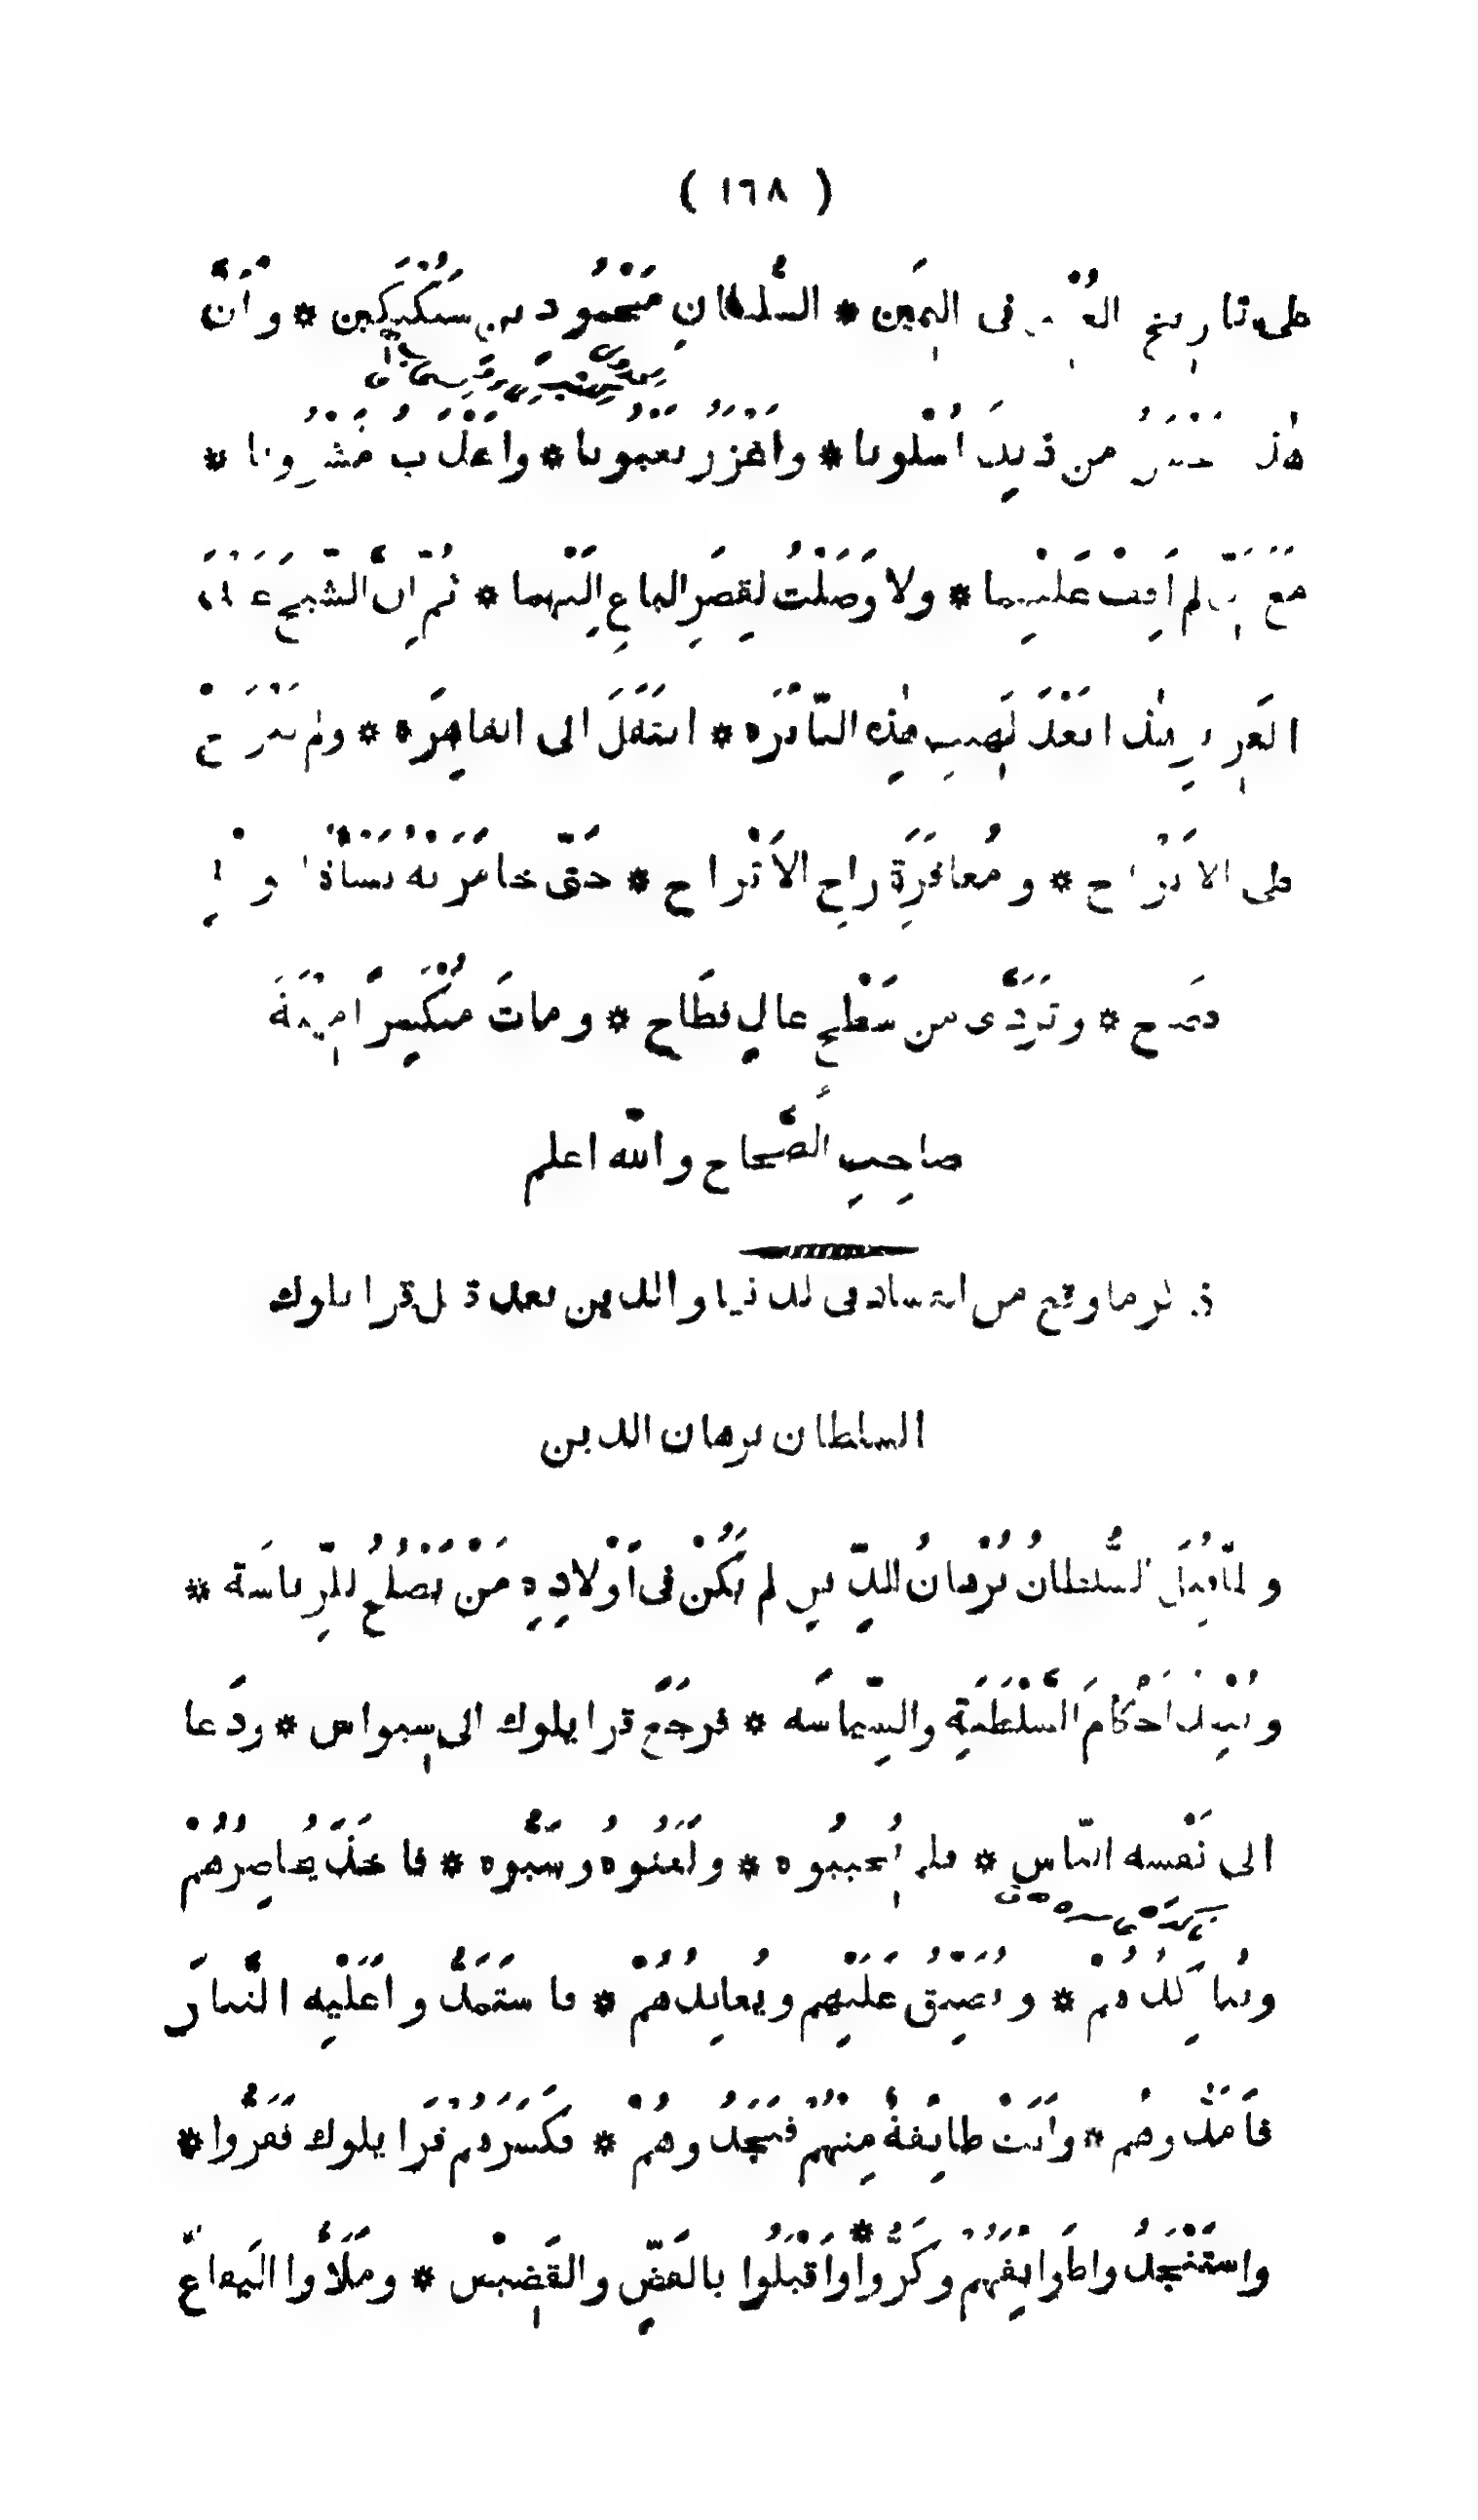 ( ١٦٨ )
على تاريخ فى اليمين * السُّلطانِ مَحْمُودِ بن سُبُكْتَكِين * وأنَّ
من ذلِكَ أُسْلوبا * وأَغْزَرُ يَعْبُوبا * وأَعْذَبُ *
مَعَ لم أَقِفْ عَلَيْهِما * ولا وَصَلْتُ لِقِصَرِ الباعِ إِلَيْهِما * ثُمَّ إِنَّ الشَّيْخَ
العَزِيزِ هٰذا بَعْدَ لَهِيبِ هٰذِهِ النَّائِرَه * انْتَقَلَ الى القاهِرَه * ولم يَبْرَحْ
على * ومُعاقَرَةِ راحِ الأَتْراح * حَتَّى خامَرَتْهُ نَشْأَةُ
* وتَرَدَّى من سَطْحٍ عالٍ فطَاح * وماتَ مُنْكَسِراً مِيتَةَ
صاحِبِ الصَّحاح والله اعلم
ذكر ما وقع من الفساد فى الدنيا والدين بعد قتل قرا يلوك
السلطان برهان الدين
ولمَّا قُتِلَ السُّلطانُ بُرْهانُ الدِّينِ لم يَكُنْ فى أَوْلادِهِ مَنْ يَصْلُحُ للرِّياسَة *
أَحْكامَ السَّلْطَنَةِ والسِّياسَه * فرَجَعَ قرا يلوك الى سِيواس * ودَعا
الى نَفْسه النّاس * فلم يُجِيبُوه * ولَعَنُوهُ وسَبُّوه * فأخَذَ يُحاصِرُهُمْ
* ويُضَيِّقُ عَلَيْهِم ويُعانِدُهُمْ * فاسْتَمَدُّوا عَلَيْه التَّتارَ
فأَمَدُّوهُم * وأَتَتْ طائِفَةٌ مِنْهُمْ فنَجَدُوهُمْ * فكَسَرَهُم قَرا يلوك فَفَرُّوا *
واسْتَنْجَدُوا طَوائِفَهُمْ وكَرُّوا * وأَقْبَلُوا بالقَضِّ والقَضِيض * ومَلَأُوا البِقاعَ